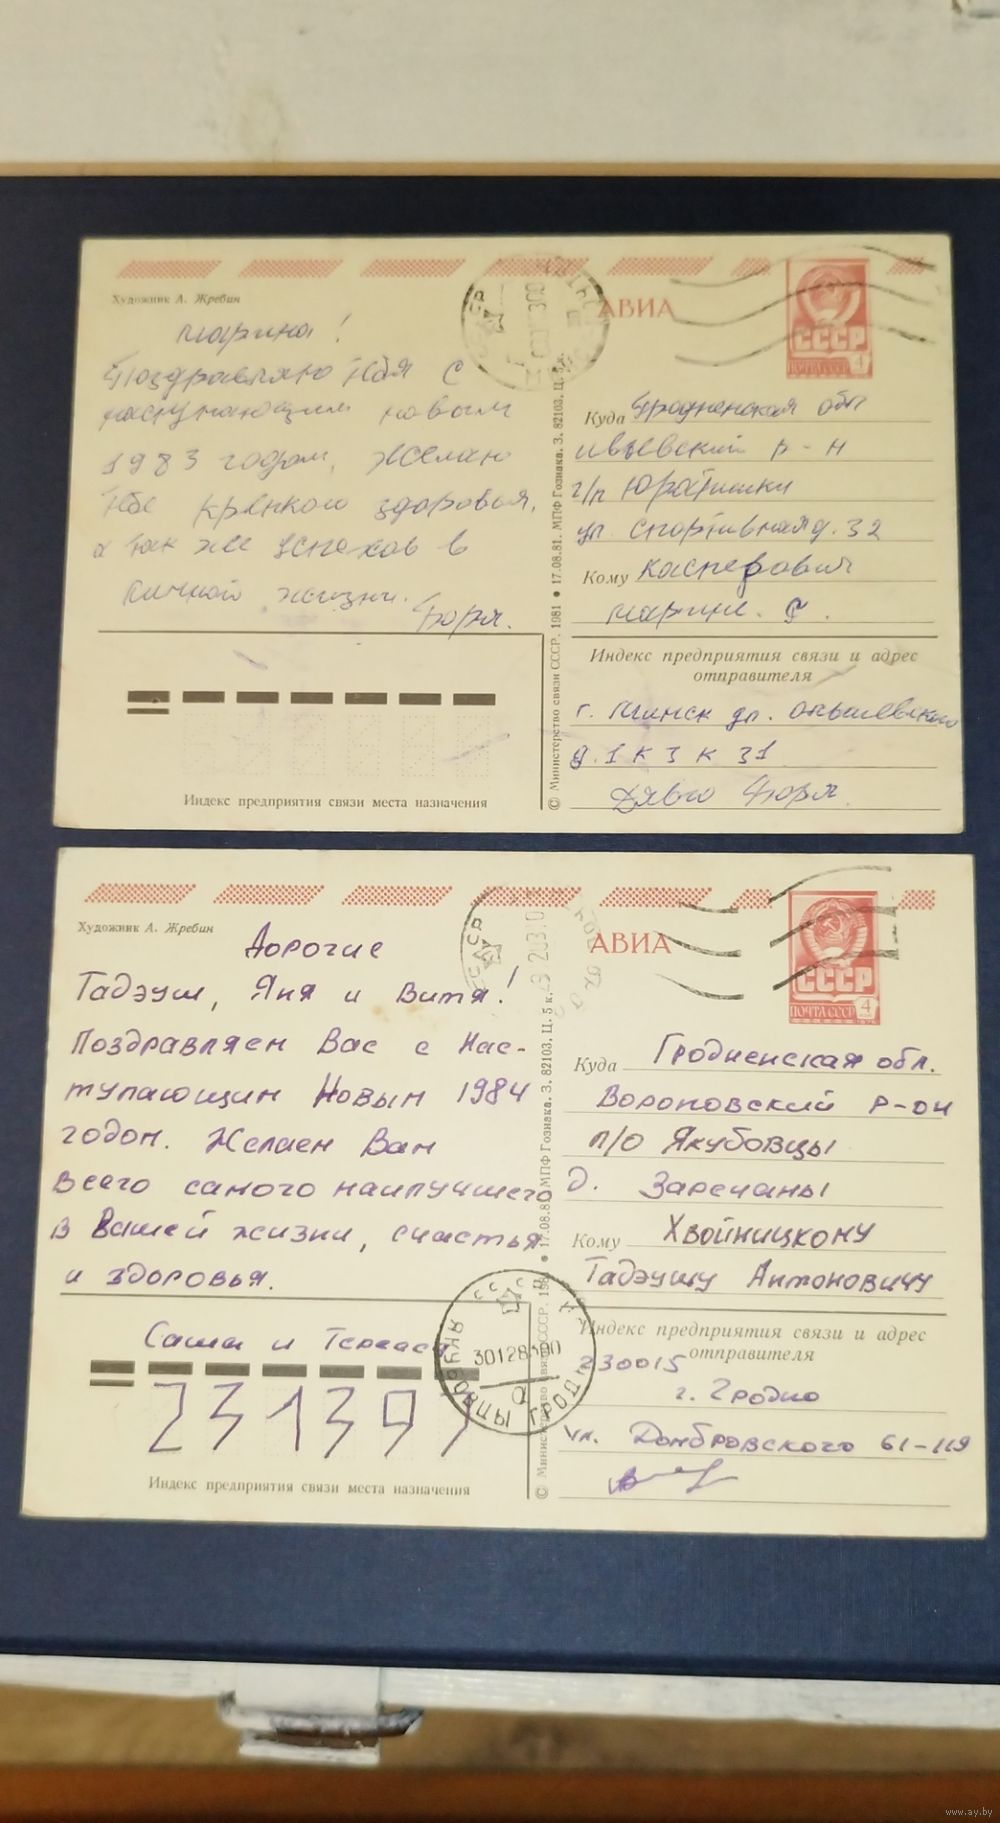 Художник А. Жребин
АВИА
СССР
ПОЧТА СССР 4
Марина!
Поздравляю тебя с
наступающим новым
1983 годом, желаю
тебе крепкого здоровья,
а так же успехов в
личной жизни.
Боря.
Куда Гродненская обл
Ивьевский р-н
г/п Юратишки
ул Спортивная д. 32
Кому Касперович
Марине.
Индекс предприятия связи и адрес
отправителя
г. Минск ул.
д. 1 к 3 к 31
Боря
Индекс предприятия связи места назначения
© Министерство связи СССР. 1981 • 17.08.81. МПФ Гознака. З. 82103. Ц. 5 к.
Художник А. Жребин
АВИА
СССР
ПОЧТА СССР 4
Дорогие
Тадэуш, Яня и Витя!
Поздравляем Вас с Нас-
тупающим Новым 1984
годом. Желаем Вам
всего самого наилучшего
в Вашей жизни, счастья
и здоровья.
Саша и Тереса
231397
Индекс предприятия связи места назначения
Куда Гродненская обл.
Вороновский р-он
п/о Якубовцы
д. Заречаны
Кому Хвойницкому
Тадэушу Антоновичу
Индекс предприятия связи и адрес
отправителя
230015
г. Гродно
ул. Домбровского 61-119
© Министерство связи СССР. 17.08.8 МПФ Гознака. З. 82103. Ц. 5 к.
www.ay.by